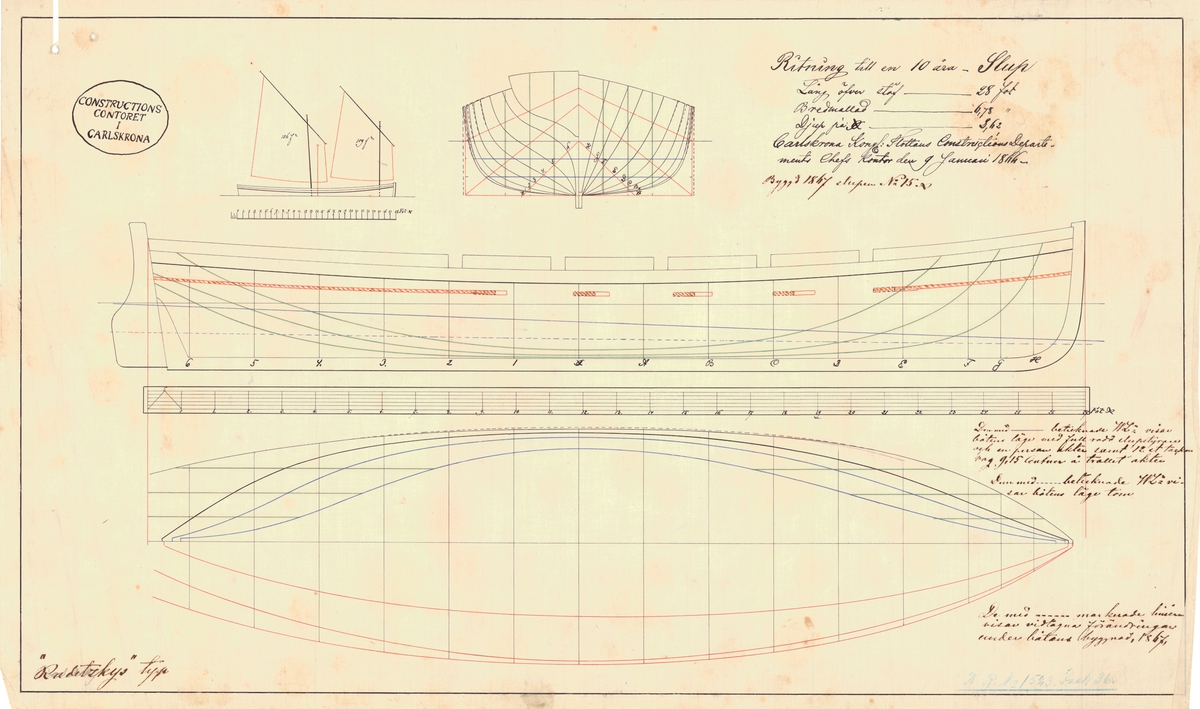 CONSTRUCTIONS
CONTORET
I
CARLSKRONA
Ritning till en 10 åra - Slup
Läng öfver stäf 28 fot
Bredmallad 6,78 "
Djup på 2,62
Carlskrona Kongl. Flottans Constructions Departe-
ments Chefs Kontor den 9 Januari 1866
Byggd 1867 slupen No 15
6 5 4 3 2 1 A B C D E F G H
Den med betecknade WL visar
båtens läge med full rodd
och en person akter samt 12
9,15 Centner å trallet akter
Den med betecknade WL vi-
sar båtens läge tom
De med marknade linier
visar vidtagna förändringar
under båtens byggnad, 1867,
"Radetzkys" typ